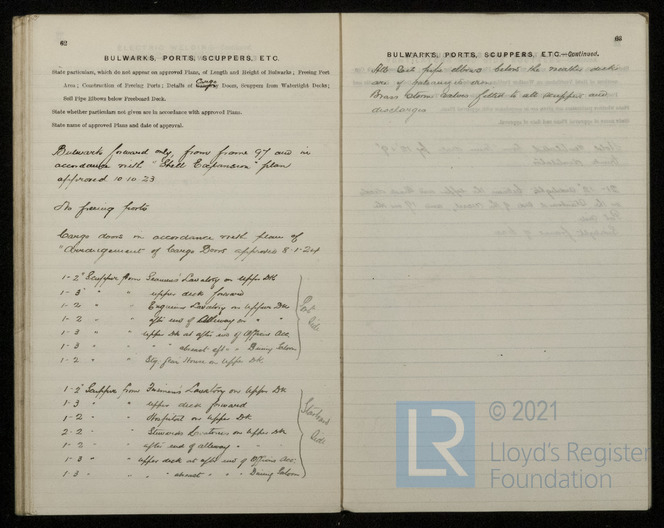 62
BULWARKS, PORTS, SCUPPERS, ETC.
State particulars, which do not appear on approved Plans, of Length and Height of Bulwarks; Freeing Port
Area; Construction of Freeing Ports; Details of Cargo Doors, Scuppers from Watertight Decks;
Soil Pipe Elbows below Freeboard Deck.
State whether particulars not given are in accordance with approved Plans.
State name of approved Plans and date of approval.
Bulwarks forward only, from frame 97 and in
accordance with "Shell Expansion" plan
approved 10.10.23
No freeing ports
Cargo doors in accordance with plan of
"Arrangement of Cargo Doors approved 8.1.24
1 - 2" Scupper from Seamens' Lavatory on upper Dk
1 - 3" " " upper deck forward
1 - 2 " " Engineers Lavatory on Upper Dk
1 - 2 " " after end of Alleyway on " "
1 - 3 " " upper Dk at after end of Officers Acc.
1 - 3 " " " " abreast aft " " Dining Saloon
1 - 2 " " Stg. Gear House on Upper Dk.
Port
Side
1 - 2" Scupper from Firemen's Lavatory on Upper Dk
1 - 3 " " upper deck forward
1 - 2 " " Hospital on upper Dk
2 - 2 " " Stewards Lavatories on upper Dk
1 - 2 " " after end of alleyway " "
1 - 3 " " upper deck at after end of Officers Acc.
1 - 3 " " " abreast " " " Dining Saloon
Starboard
Side
63
BULWARKS, PORTS, SCUPPERS, ETC.—Continued.
All Cast pipe elbows below the weather deck
are of galvanized iron
Brass storm valves fitted to all scuppers and
discharges
LR
© 2021
Lloyd's Register
Foundation